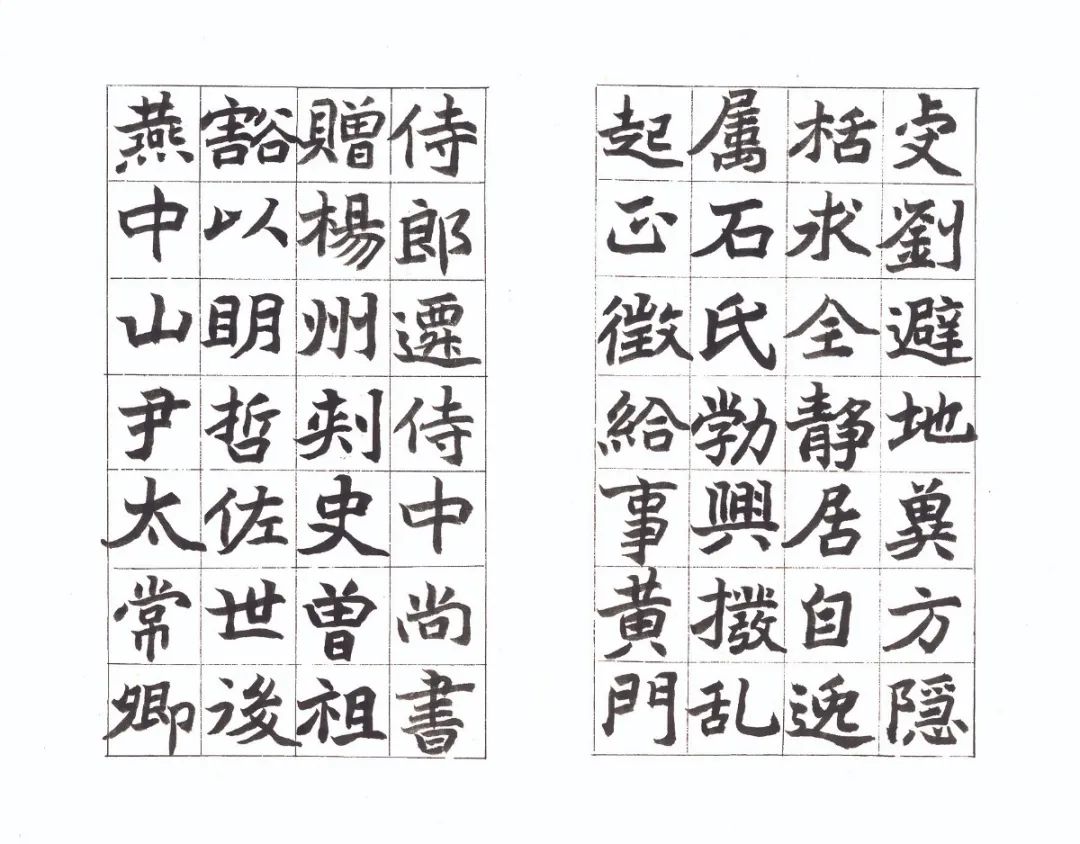 虔劉避地冀方隱
栝求全静居自逸
属石氏勃興撥乱
起正徵給事黄門
侍郎遷侍中尚書
贈楊州刺史曽祖
豁以明哲佐世後
燕中山尹太常卿